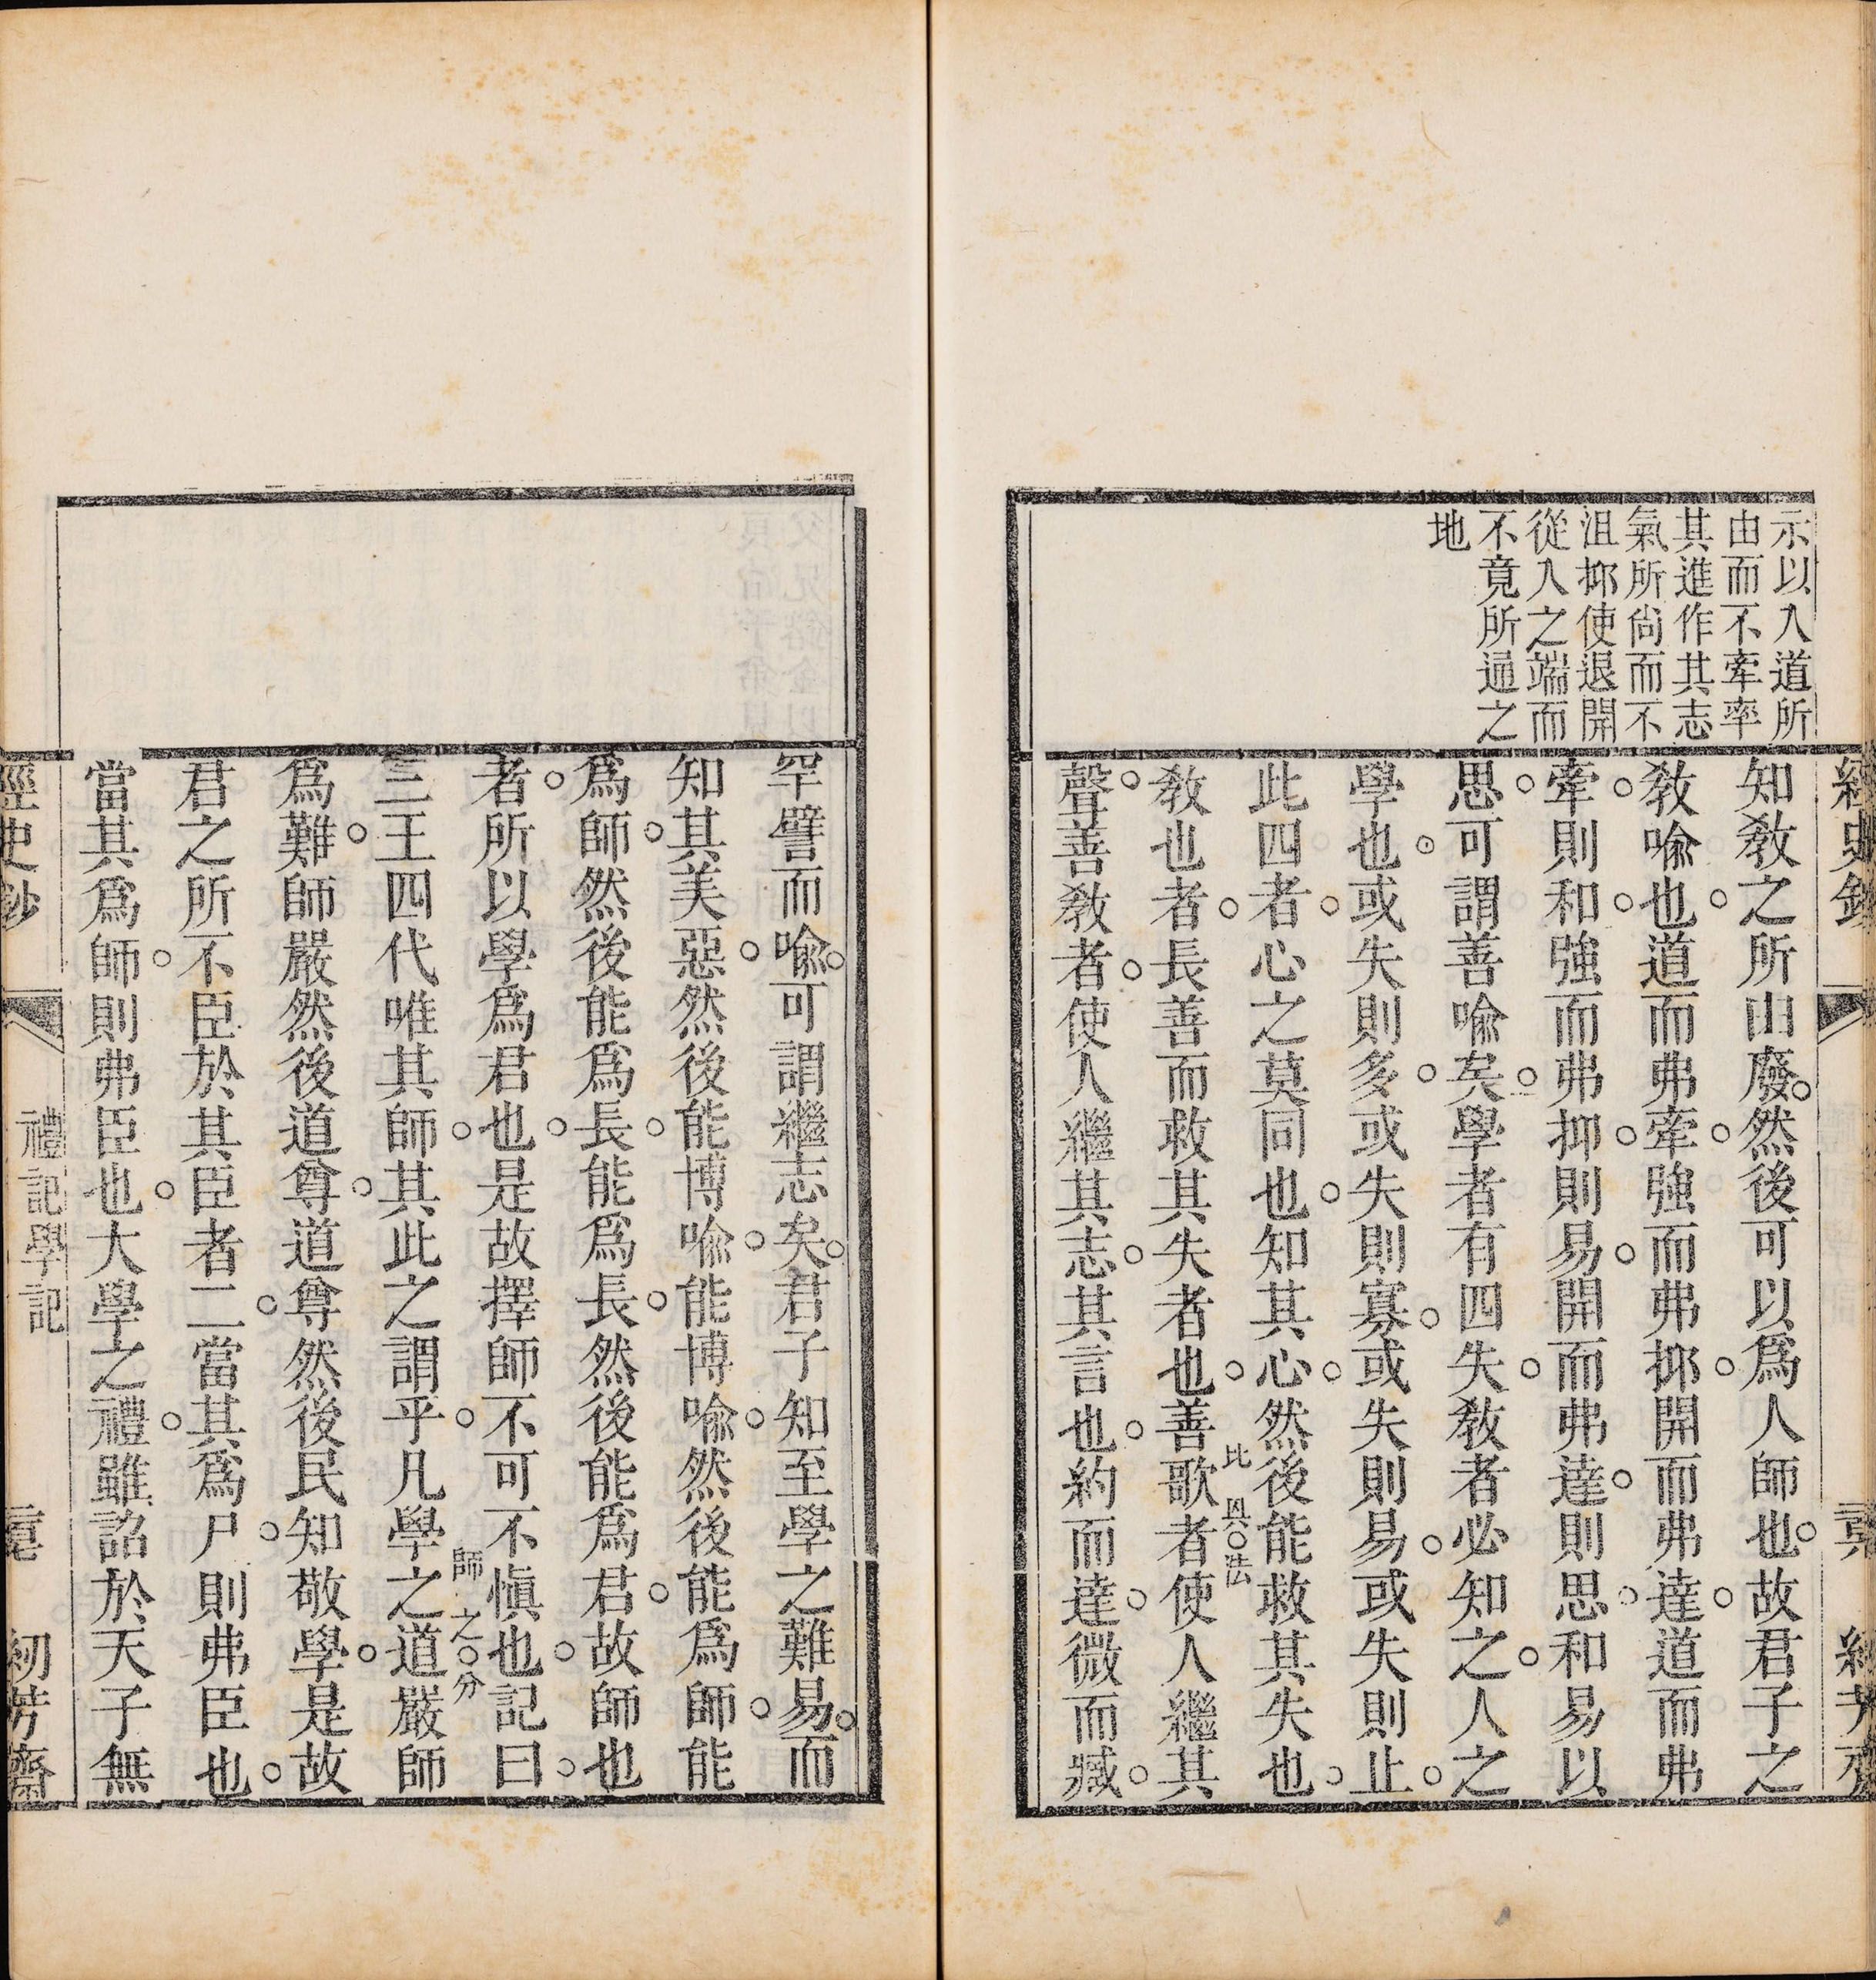 示以入道所
由而不牽率
其進作其志
氣所尙而不
沮抑使退開
從入之端而
不竟所通之
地
知敎之所由廢。然後可以爲人師也。故君子之
敎喩也。道而弗牽。強而弗抑。開而弗達。道而弗
牽。則和。強而弗抑。則易。開而弗達。則思。和易以
思。可謂善喩矣。學者有四失。敎者必知之。人之
學也。或失則多。或失則寡。或失則易。或失則止。
此四者。心之莫同也。知其心。然後能救其失也。
比 與。法
敎也者。長善而救其失者也。善歌者使人繼其
聲。善敎者。使人繼其志。其言也。約而達。微而臧。
罕譬而喩。可謂繼志矣。君子知至學之難易。而
知其美惡。然後能博喩。能博喩。然後能爲師。能
爲師。然後能爲長。能爲長。然後能爲君。故師也
者。所以學爲君也。是故擇師不可不愼也。記曰。
師 之。分
三王四代唯其師。其此之謂乎。凡學之道嚴師
爲難。師嚴然後道尊。道尊然後民知敬學。是故
君之所不臣於其臣者二。當其爲尸。則弗臣也。
當其爲師。則弗臣也。大學之禮。雖詔於天子無
經史鈔
禮記學記
紉芳齋